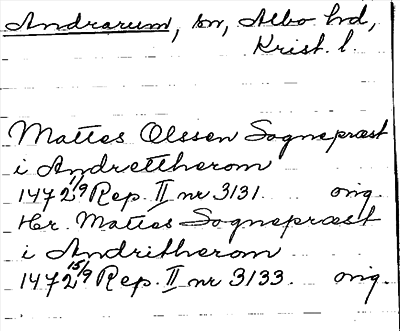 Andrarum, sn, Albo hd,
Krist. l.
Mattes Olssen Sognepræst
i Andrettherom
1472 11/9 Rep. II nr 3131. orig.
Hr. Mattes Sognepræst
i Andritherom
1472 15/9 Rep. II nr 3133. orig.